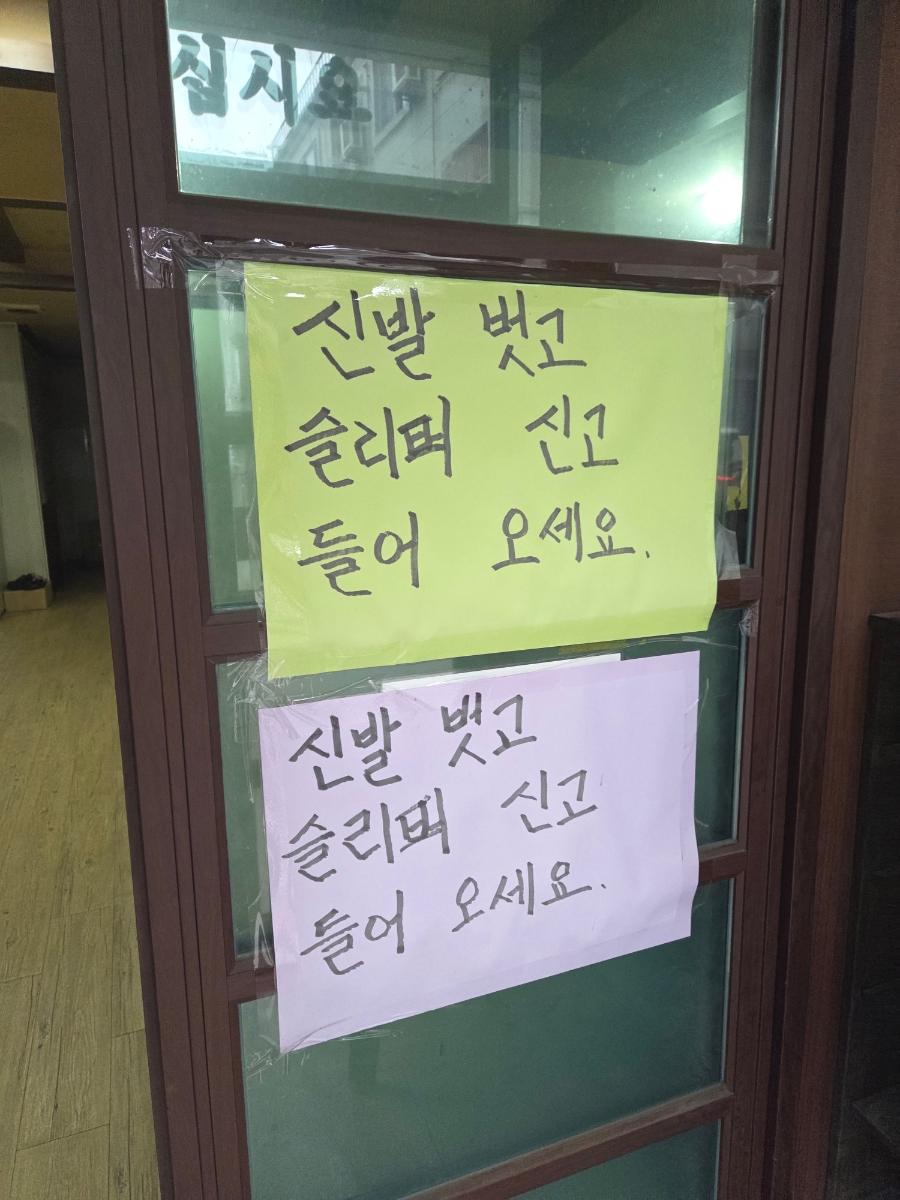 십시요
신발 벗고
슬리퍼 신고
들어 오세요.
신발 벗고
슬리퍼 신고
들어 오세요.